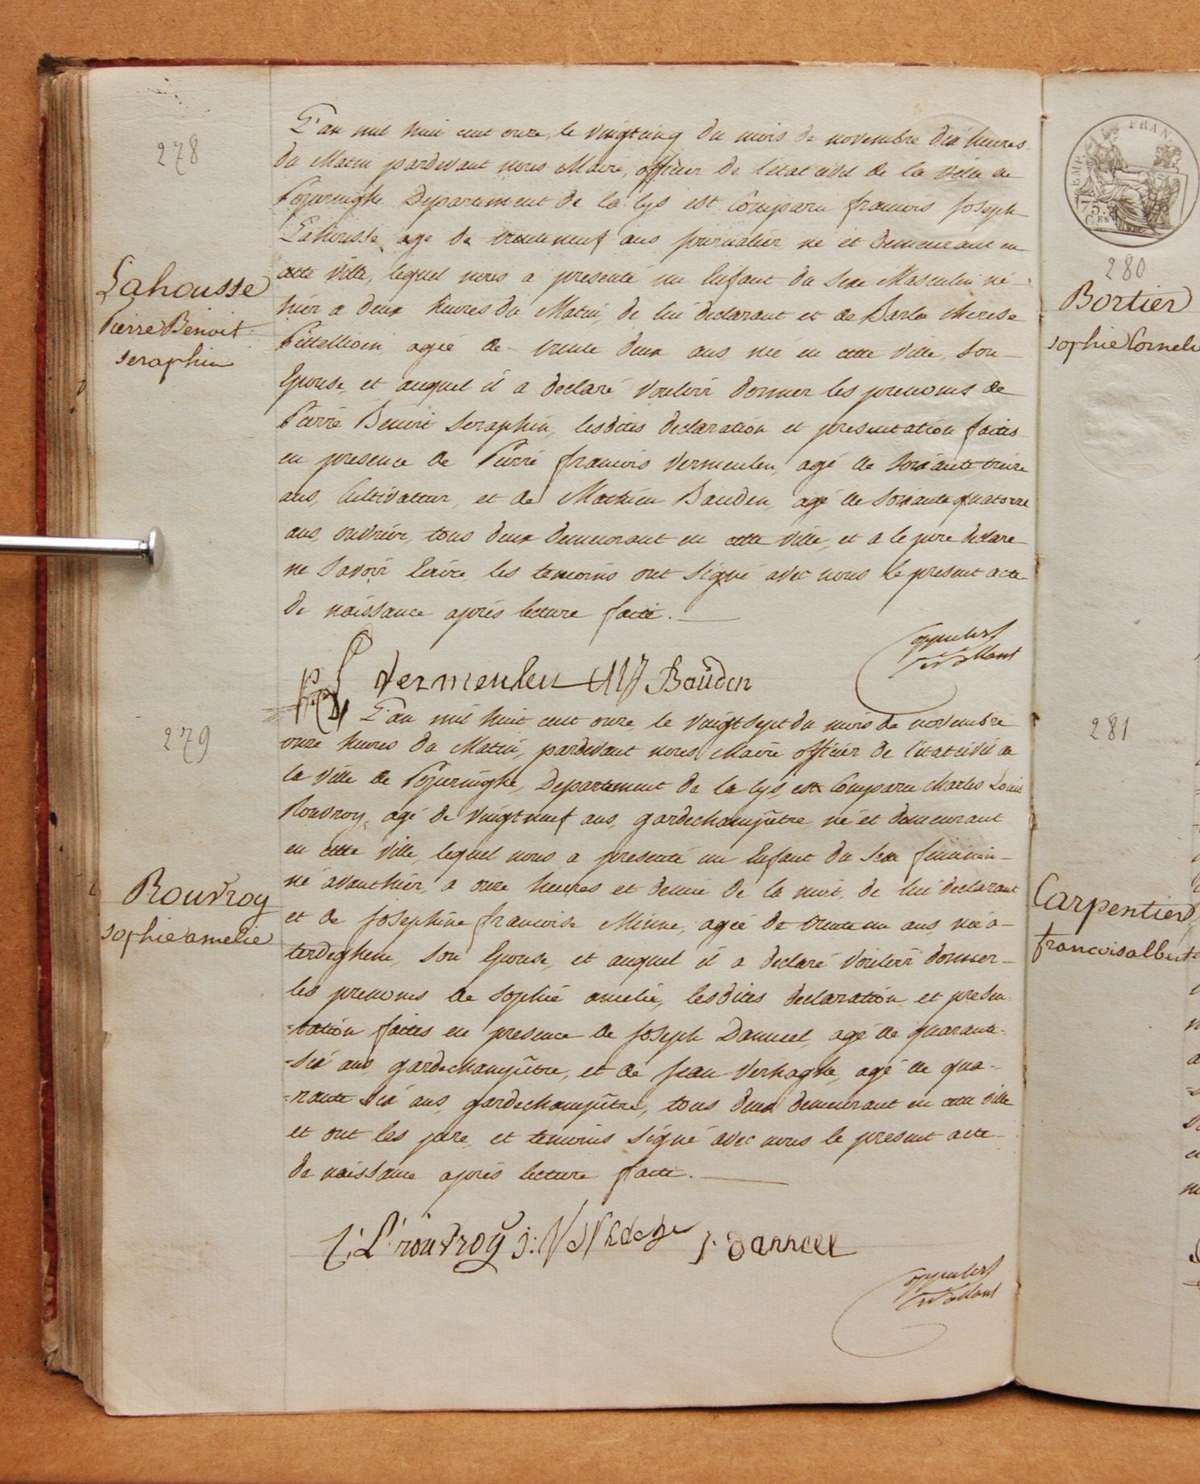 278
L'an mil huit cent onze, le vingt cinq du mois de novembre dix heures
du Matin pardevant nous Maire, officier de l'état civil de la ville de
Poperinghe Departement de la Lys est Comparu francois Joseph
Lahousse, agé de trenteneuf ans journalier né et demeurant en
cette ville, lequel nous a presenté un Enfant du Sexe Masculin né
hier a deux heures du Matin, de lui declarant et de Barbe therese
agée de trente deux ans née en cette ville, Son
Epouse, et auquel il a declaré vouloir donner les prenoms de
Pierre Benoit Seraphin, lesdites declaration et presentation faites
en presence de Pierre francois Vermeulen, agé de soixante treize
ans, Cultivateur, et de Mathieu Bauden, agé de soixante quatorze
ans, ouvrier, tous deux demeurant en cette ville, et a le pere declaré
ne Savoir Ecrire, les temoins ont signé avec nous le present acte
de naissance après lecture faite.
Lahousse
Pierre Benoit
seraphin
vermeulen Bauden
279
L'an mil huit cent onze, le vingt sept du mois de novembre
onze heures du Matin, pardevant nous Maire officier de l'état civil de
la ville de Poperinghe, Departement de la Lys est Comparu Charles Louis
Rouvroy, agé de vingt neuf ans, gardechampêtre né et demeurant
en cette ville, lequel nous a presenté un Enfant du Sexe feminin
né avanthier, a onze heures et demie de la nuit, de lui declarant
et de Josephine francoise Minne, agée de trente un ans née a
terdeghem, son Epouse, et auquel il a declaré vouloir donner
les prenoms de Sophie amelie, lesdites declaration et presen
=tation faites en presence de Joseph Danneel, agé de quarante
=six ans gardechampêtre, et de Jean Verhaghe, agé de qua-
=rante six ans, gardechampêtre, tous deux demeurant en cette ville
et ont les pere et temoins signé avec nous le present acte
de naissance après lecture faite.
Rouvroy
sophie amelie
L. rouvroy J: J. Danneel
280
Bortier
sophie Corneli
281
Carpentier
francois albert